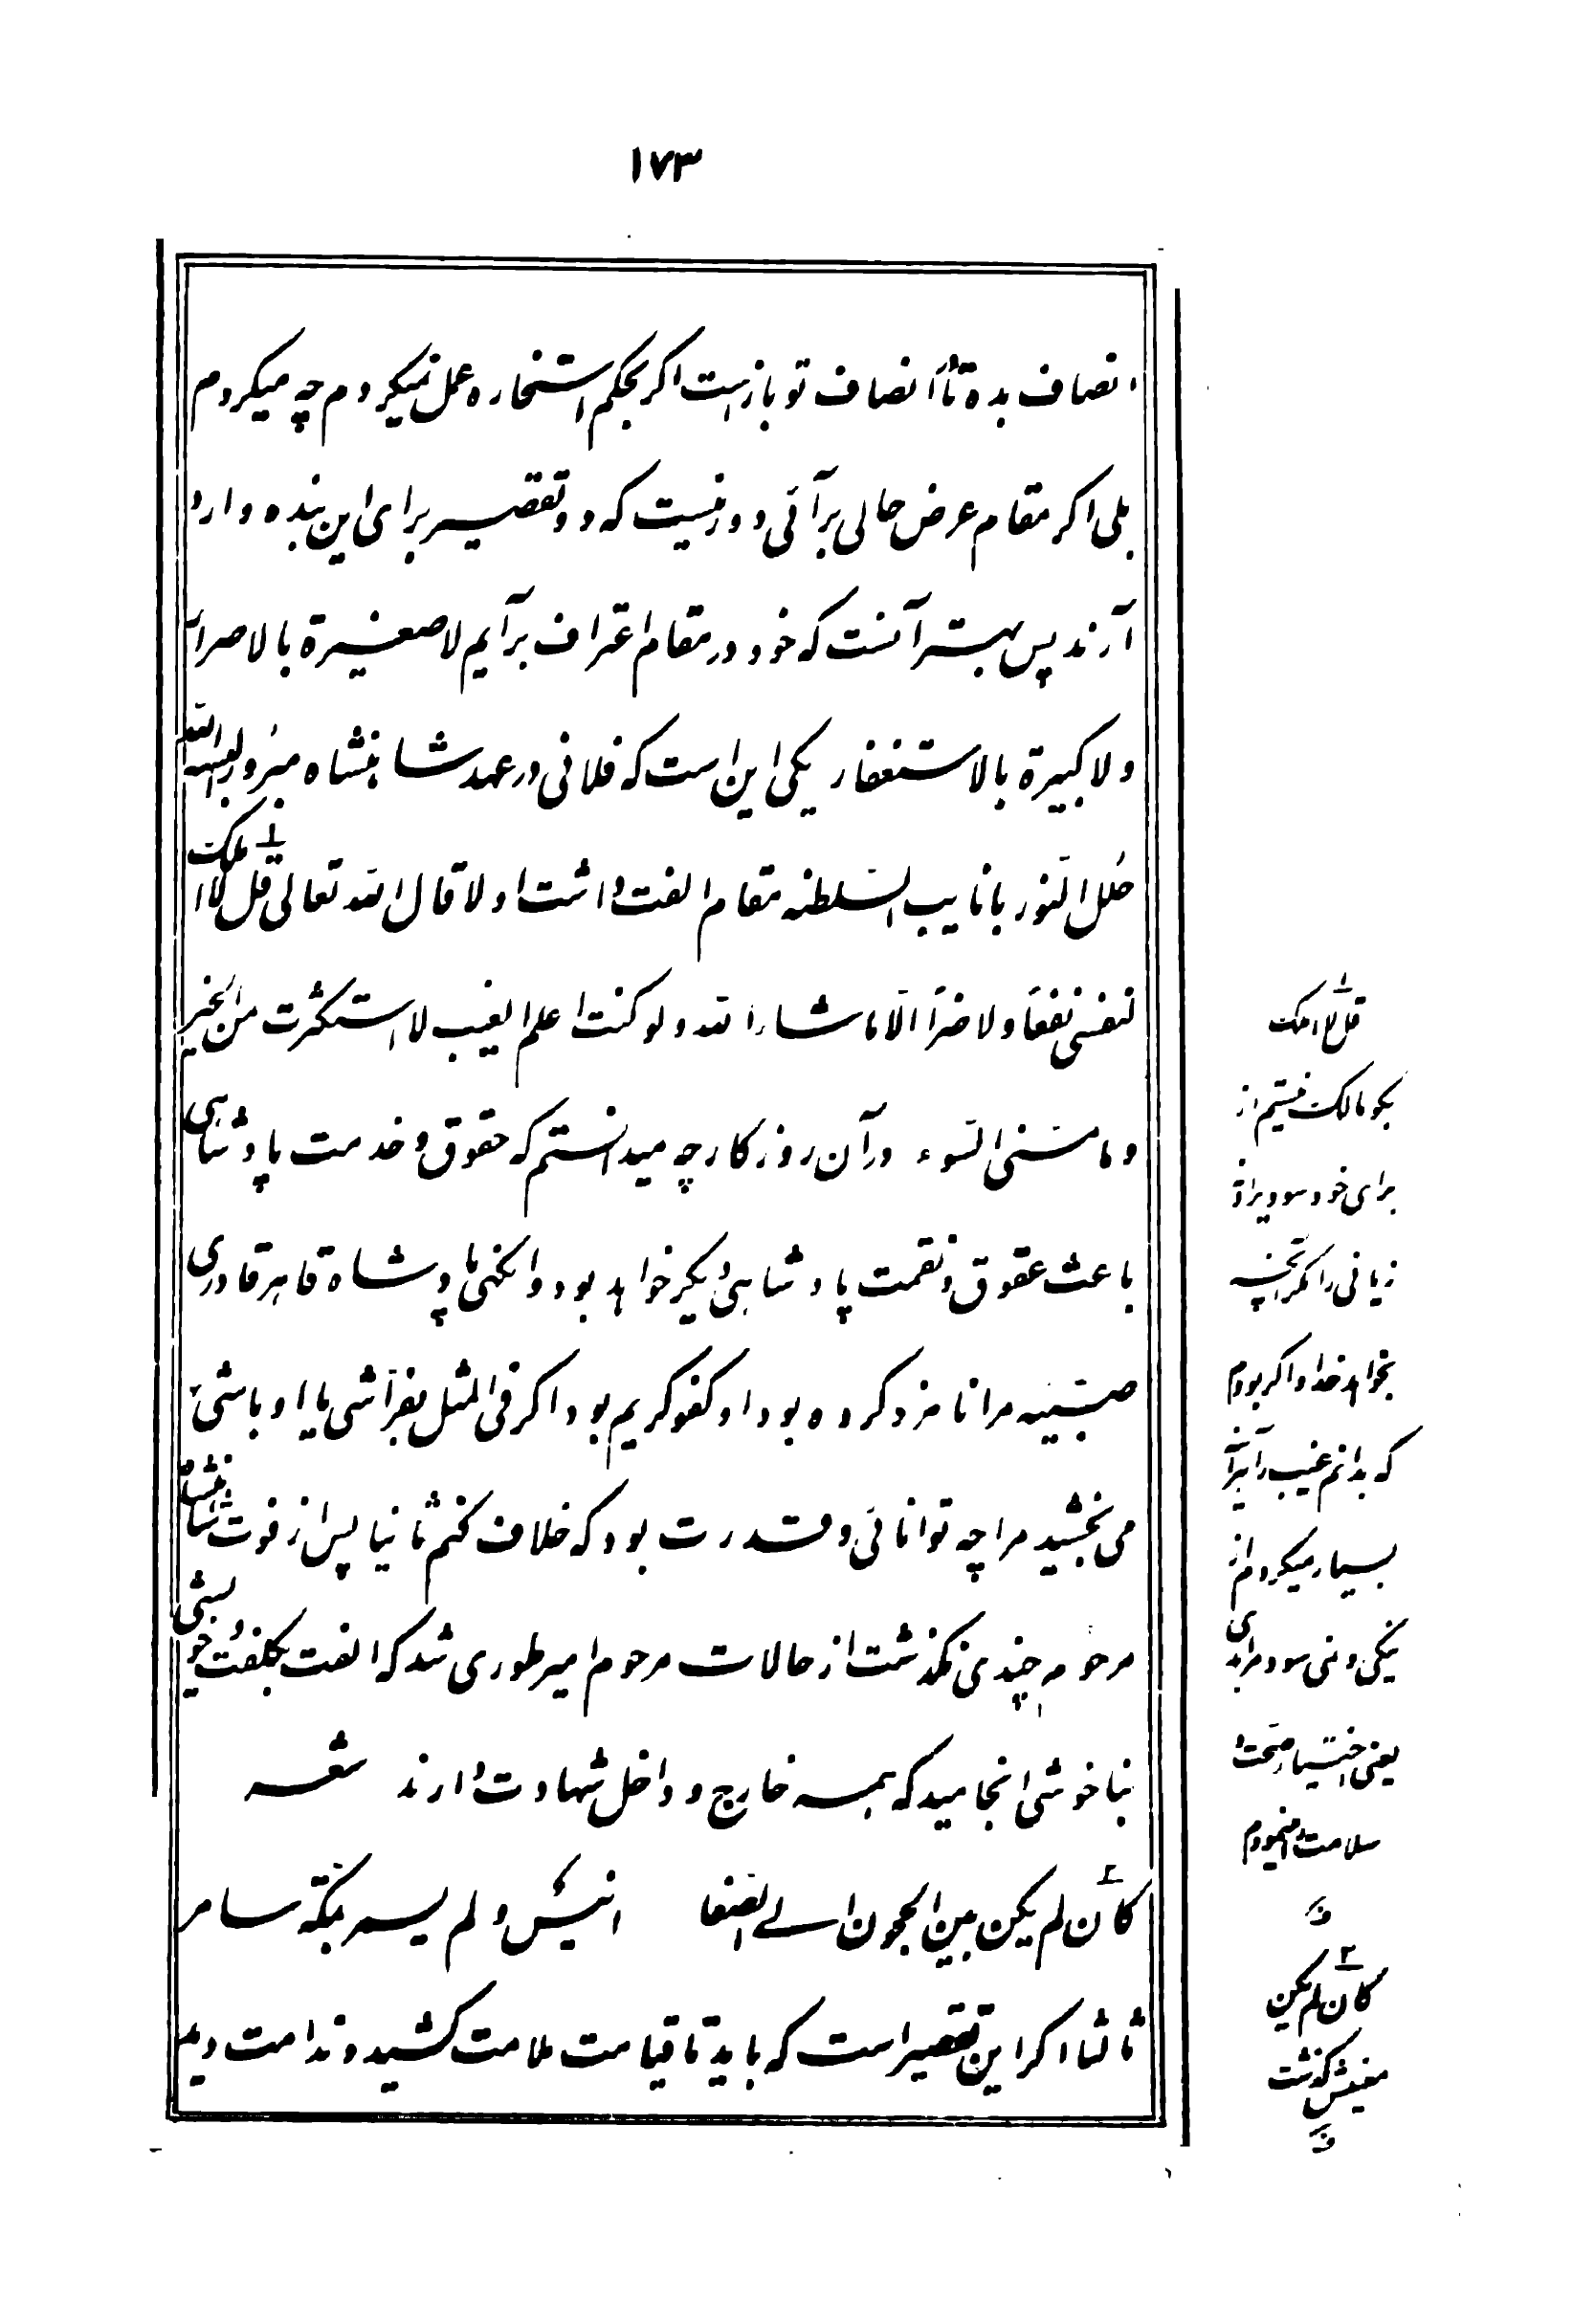 ۱۷۳
انصاف بده تا انصاف تو بازست اکر بحکم استخاره عمل نمیکردم چه میکردم
بلی اکر مقام عرض حالی برآئی دور نیست که دو تقصیر برای این بنده وارد
آرند پس بهتر آنست که خود در مقام اعتراف برآیم لا صغیرة بالاصرار
ولا کبیرة بالاستغفار یکی این است که فلانی در عهد شاهنشاه مبرور البسه الله
حلل النور با نایب السلطنه مقام الفت داشت اولا قال الله تعالی قل لا املک
لنفسی نفعا ولا ضرا الا ماشاء الله ولو کنت اعلم الغیب لا استکثرت من الخیر
وما مسنی السوء در آن روزکار چه میدانستم که حقوق و خدمت پادشاهی
باعث عقوق و نقمت پادشاهی دیکر خواهد بود وانکهی پادشاه قاهر قادری
صبیه مرا نامزد کرده بود او کفو کریم بود اکر فی المثل بفراشی یا اوباشی
می بخشید مرا چه توانائی و قدرت بود که خلاف کنم ثانیا پس از فوت شاهنشاه
مرحوم چندی نکذشت از حالات مرحوم امیر طوری شد که الفت بکلفت و خوشی
بناخوشی انجامید که همه خارج و داخل شهادت دارند شعر
کأن لم یکن بین الحجون الی الصفا انیس و لم یسمر بمکة سامر
ثالثا اکر این تقصیر است که باید تا قیامت ملامت کشید و ندامت دید
قل لا املک
بکو مالک نیستم از
برای خود سود را و
زیانی را مکر آنچه
بخواهد خدا و اکر بودم
که بدانم غیب را
بسیار میکردم از
نیکی و نمی سود مرا بدی
یعنی اختیار صحت و
سلامت مینمودم
کأن لم یکن
معنیش کذشت